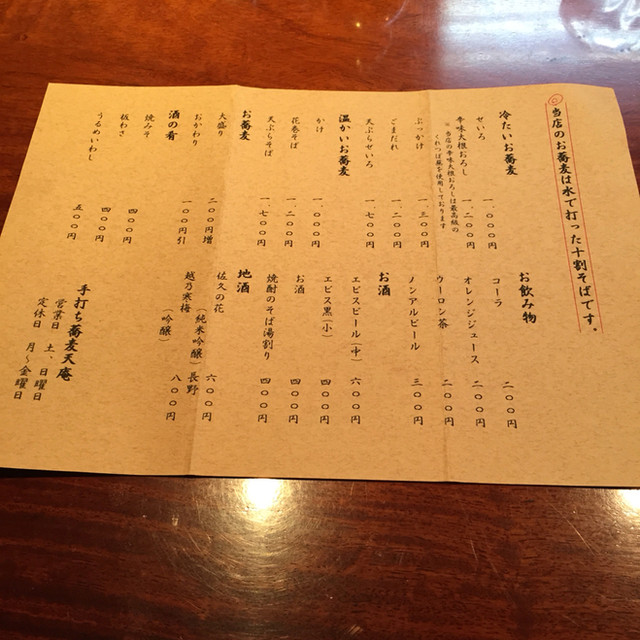 当店のお蕎麦は水で打った十割そばです。
冷たいお蕎麦
せいろ 一、〇〇〇円
辛味大根おろし 一、二〇〇円
※当店の辛味大根おろしは最高級の
くれつぼ蕪を使用しております
ぶっかけ 一、三〇〇円
ごまだれ 一、二〇〇円
天ぷらせいろ 一、七〇〇円
温かいお蕎麦
かけ 一、〇〇〇円
花巻そば 一、二〇〇円
天ぷらそば 一、七〇〇円
お蕎麦
大盛り 二〇〇円増
おかわり 一〇〇円引
酒の肴
焼みそ
板わさ 四〇〇円
うるめいわし 四〇〇円
五〇〇円
お飲み物
コーラ 二〇〇円
オレンジジュース 二〇〇円
ウーロン茶 二〇〇円
ノンアルビール 三〇〇円
お酒
エビスビール(中) 六〇〇円
エビス黒(小) 四〇〇円
お酒 四〇〇円
焼酎のそば湯割り 四〇〇円
地酒
佐久の花
(純米吟醸)長野 六〇〇円
越乃寒梅
(吟醸) 八〇〇円
手打ち蕎麦天庵
営業日 土、日曜日
定休日 月〜金曜日